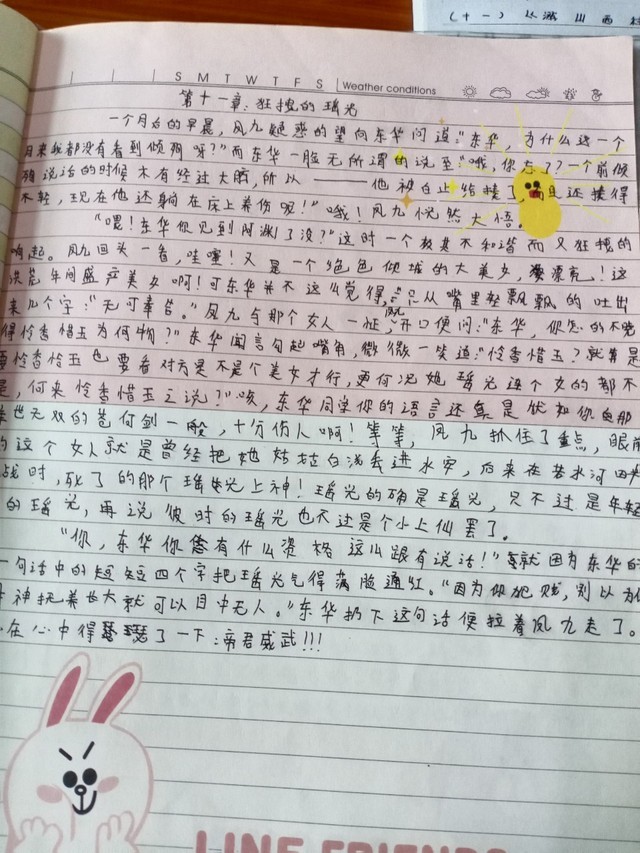 (十一) 从
S M T W T F S Weather conditions
第十一章:狂拽的瑶光
一个月后的早晨,凤九疑惑的望向东华问道:"东华,为什么这一个
月来我都没有看到倾狗呀?"而东华一脸无所谓的说至"哦,你
说话的时候木有经过大脑,所以———他被白止给揍了,而且还揍得
不轻,现在他还躺在床上养伤呢!"哦!凤九恍然大悟。
"喂!东华你见到阿渊了没?"这时一个极其不和谐而又狂拽的
响起。凤九回头一看,哇噻!又是一个绝色倾城的大美女,漂亮!这
洪荒年间盛产美女啊!可东华并不这么觉得,只从嘴里轻飘飘的吐出
来几个字:"无可奉告。"凤九与那个女人一怔,凤九开口便问:"东华,你怎的不晓
得怜香惜玉为何物?"东华闻言勾起嘴角,微微一笑道:"怜香惜玉?就算是
要怜香惜玉也要看对方是不是个美女才行,更何况她瑶光连个女的都不
是,何来怜香惜玉之说?"咳,东华同学你的语言还真是犹如你的那
举世无双的苍何剑一般,十分伤人啊!等等,凤九抓住了重点,眼前
的这个女人就是曾经把她姑姑白浅丢进水牢,后来在若水河
战时,死了的那个瑶光上神!瑶光的确是瑶光,只不过是年轻
的瑶光,再说彼时的瑶光也不过是个小上仙罢了。
"你,东华你有什么资格这么跟有说话!"就因为东华的
一句话中的短短四个字把瑶光气得满脸通红。"因为你犯贱,别以为
神把养女大就可以目中无人。"东华扔下这句话便拉着凤九走了。
在心中得瑟了一下:帝君威武!!!
LINE FRIENDS